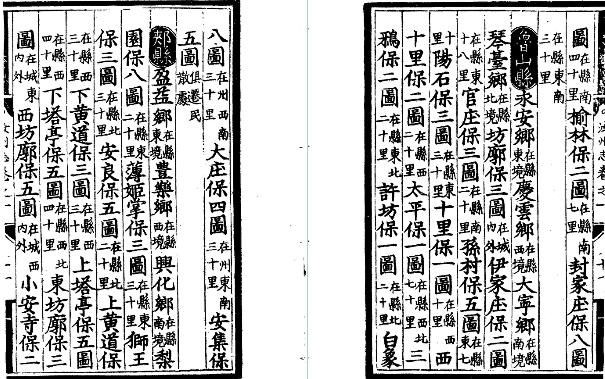 圖在縣南四十里榆林保二圖在縣七里封家庄保八圖
在縣東南三十里
魯山縣永安鄉在縣東境慶雲鄉在縣西境大寧鄉在縣南境
琴臺鄉在縣北境坊廓保三圖在城內外伊家庄保二圖
在縣東北十八里官庄保三圖在縣東北二十里孫村保五圖在縣東七
十里陽石保三圖在縣東三十里十里保一圖在縣西十里西
十里保二圖在縣西十里太平保一圖在縣西北七十里三
鴉保二圖在縣東北二十里許坊保一圖在縣北二十里白象
八圖在州西南三十里大庄保四圖在州東南三十里安集保
五圖俱遷民散處
郟縣盈益鄉在縣東境豊樂鄉在縣西境興化鄉在縣南境梨
園保八圖在縣東北二十里薄姬掌保三圖在縣東三十里獅王
保三圖在縣北三十里安良保五圖在縣北二十里上黄道保
在縣西三十里下黄道保三圖在縣西北三十里上塔亭保五圖
在縣西四十里下塔亭保五圖在縣西北四十里東坊廓保三
圖在城東內外西坊廓保五圖在城西內外小安寺保二